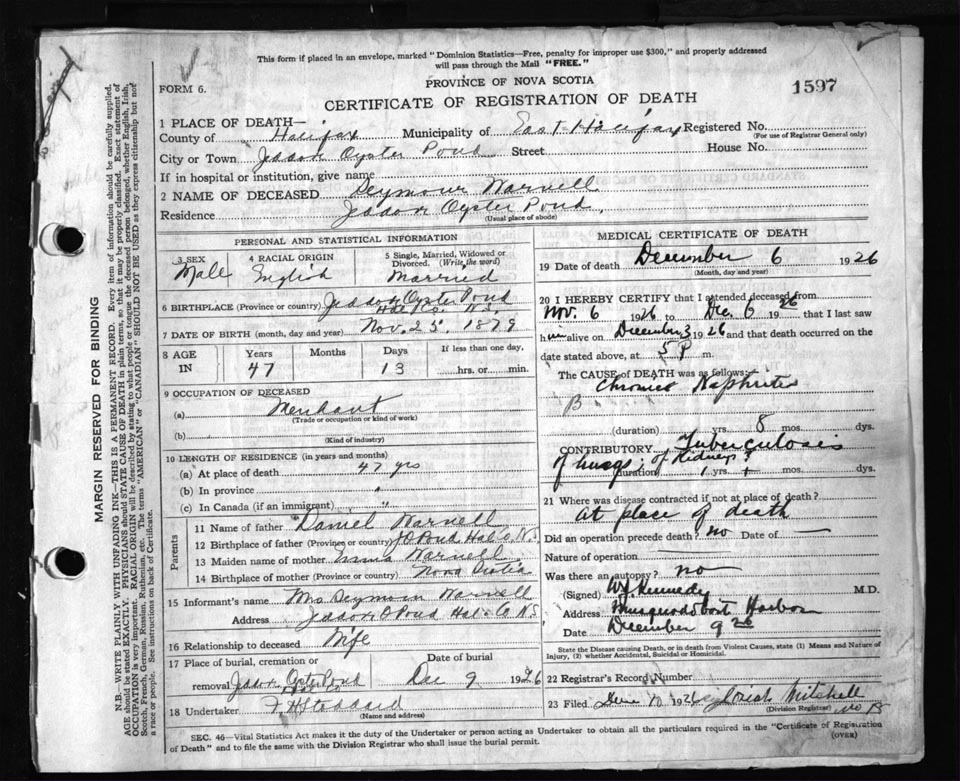 This form if placed in an envelope, marked "Dominion Statistics—Free, penalty for improper use $300," and properly addressed
will pass through the Mail "FREE."
PROVINCE OF NOVA SCOTIA
FORM 6.
1597
CERTIFICATE OF REGISTRATION OF DEATH
1 PLACE OF DEATH—
County of Halifax Municipality of East Halifax Registered No.
(For use of Registrar General only)
City or Town Jeddore Oyster Pond Street House No.
If in hospital or institution, give name
2 NAME OF DECEASED Seymour Warnell
Residence Jeddore Oyster Pond,
(Usual place of abode)
PERSONAL AND STATISTICAL INFORMATION
3 SEX Male
4 RACIAL ORIGIN English
5 Single, Married, Widowed or Divorced. (Write the word) Married
6 BIRTHPLACE (Province or country) Jeddore Oyster Pond
Hal. Co. N.S.
7 DATE OF BIRTH (month, day and year) Nov. 25, 1879
8 AGE IN Years 47 Months Days 13 If less than one day, hrs. or min.
9 OCCUPATION OF DECEASED
(a) Merchant
(Trade or occupation or kind of work)
(b)
(Kind of industry)
10 LENGTH OF RESIDENCE (in years and months)
(a) At place of death 47 yrs
(b) In province "
(c) In Canada (if an immigrant) "
Parents
11 Name of father Daniel Warnell
12 Birthplace of father (Province or country) J O Pond Hal. Co N.S.
13 Maiden name of mother Emma Warnell
14 Birthplace of mother (Province or country) Nova Scotia
15 Informant's name Mrs Seymour Warnell
Address Jeddore O Pond Hal. Co N.S.
16 Relationship to deceased Wife
17 Place of burial, cremation or removal Jeddore Oyster Pond
Date of burial Dec 9 1926
18 Undertaker F H Stoddard
(Name and address)
MEDICAL CERTIFICATE OF DEATH
19 Date of death December 6 1926
(Month, day and year)
20 I HEREBY CERTIFY that I attended deceased from
Nov. 6 1926 to Dec. 6 1926 that I last saw
him alive on December 3 1926 and that death occurred on the
date stated above, at 5 P m.
The CAUSE of DEATH was as follows:
Chronic Nephritis
B
(duration) yrs. 8 mos. dys.
CONTRIBUTORY Tuberculosis
of lungs; of Kidneys?
(duration) 1 yrs. + mos. dys.
21 Where was disease contracted if not at place of death?
At place of death
Did an operation precede death? no Date of
Nature of operation
Was there an autopsy? no
(Signed) WJ Kennedy M.D.
Address Musquodoboit Harbor
Date December 9 26
State the Disease causing Death, or in death from Violent Causes, state (1) Means and Nature of
Injury, (2) whether Accidental, Suicidal or Homicidal.
22 Registrar's Record Number
23 Filed 10 1926 Josiah Mitchell
(Division Registrar) No B
SEC. 46—Vital Statistics Act makes it the duty of the Undertaker or person acting as Undertaker to obtain all the particulars required in the "Certificate of Registration
of Death" and to file the same with the Division Registrar who shall issue the burial permit.
(OVER)
MARGIN RESERVED FOR BINDING
N.B. WRITE PLAINLY, WITH UNFADING INK—THIS IS A PERMANENT RECORD. Every item of information should be carefully supplied.
AGE should be stated EXACTLY. PHYSICIANS should STATE CAUSE OF DEATH in plain terms, so that it may be properly classified. Exact statement of
OCCUPATION is very important. RACIAL ORIGIN will be described by stating to what people or tongue the deceased person belonged, whether English, Irish,
Scotch, French, German, Russian, Ruthenian, etc. The terms "AMERICAN" or "CANADIAN" SHOULD NOT BE USED as they express citizenship but not
a race or people. See instructions on back of Certificate.